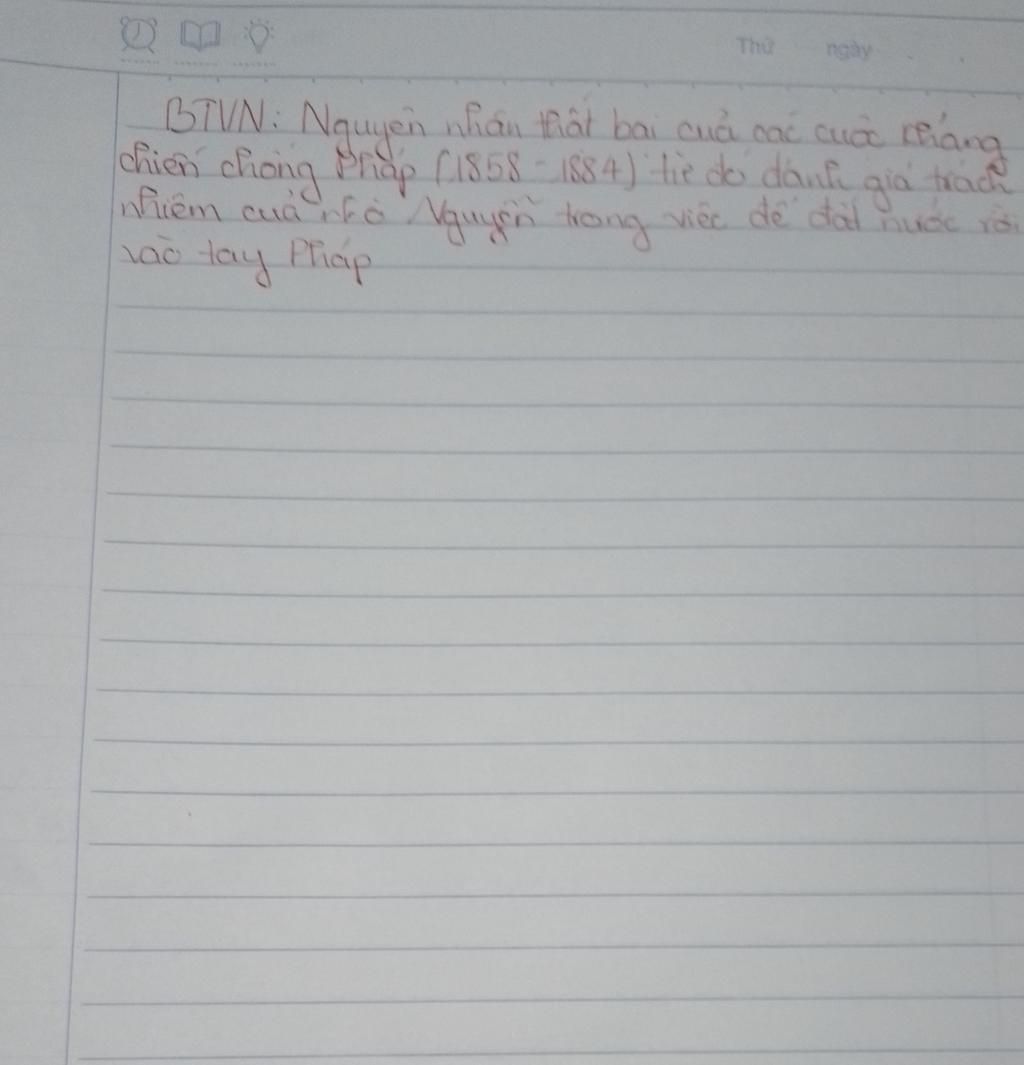 Thứ ngày
BTVN: Nguyên nhân thất bại của các cuộc kháng
chiến chống Pháp (1858 - 1884) từ đó đánh giá trách
nhiệm của nhà Nguyễn trong việc để đất nước rơi
vào tay Pháp